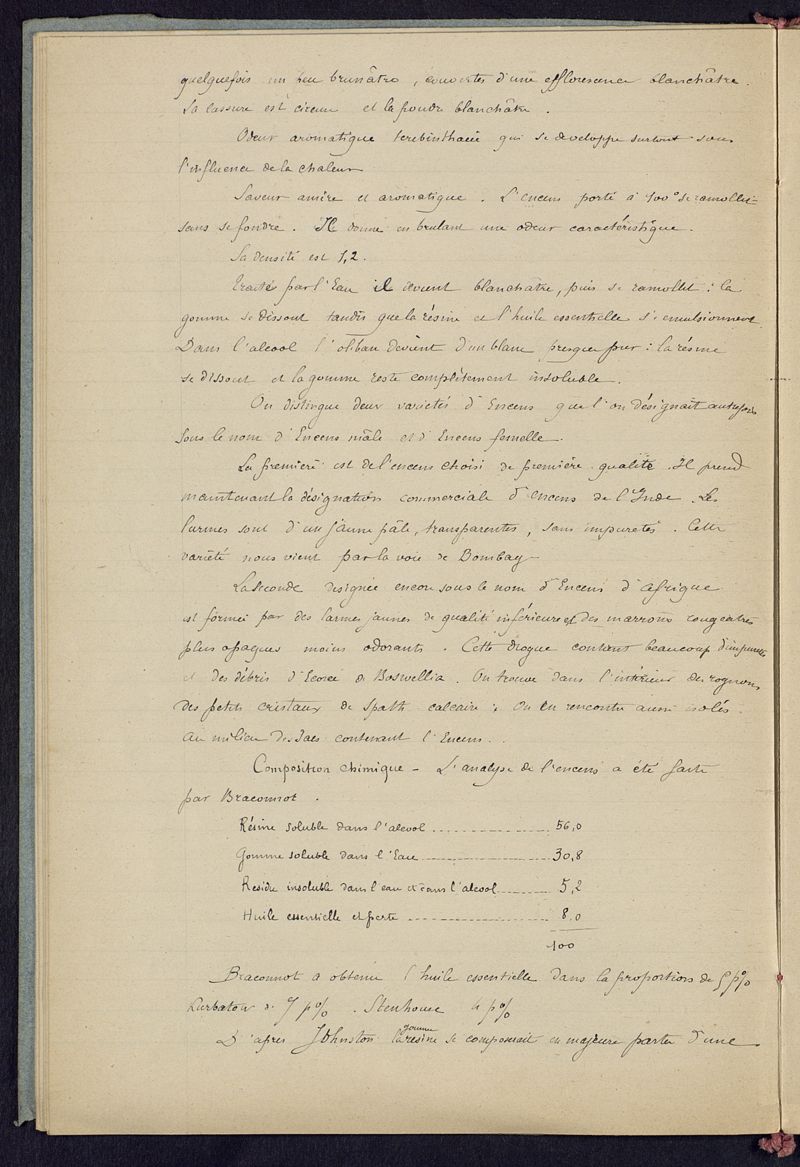 quelquefois un peu brunâtre, couvertes d'une efflorescence blanchâtre.
La cassure est cireuse et la poudre blanchâtre.
Odeur aromatique terebinthacée qui se developpe surtout sous
l'influence de la chaleur
Saveur amère et aromatique. L'encens porté à 100° se ramollit
sans se fondre. Il donne en brulant une odeur caractéristique.
Sa densité est 1,2.
Traité par l'Eau il devient blanchâtre, puis se ramollit : la
gomme se dissout tandis que la résine et l'huile essentielle s'emulsionnent.
Dans l'alcool l'oliban devient d'un blanc presque pur : la résine
se dissout et la gomme reste complètement insoluble.
On distingue deux varietés d'Encens que l'on désignait autrefois
sous le nom d'Encens mâle et d'Encens femelle.
La première est de l'encens choisi de première qualité. Il prend
maintenant la désignation commerciale d'encens de l'Inde. Les
larmes sont d'un jaune pâle, transparentes, sans impuretés. Cette
variété nous vient par la voie de Bombay
La seconde designée encore sous le nom d'Encens d'Afrique
est formée par des larmes jaunes de qualité inférieure et des marrons rougeatres
plus opaques moins odorants. Cette drogue contient beaucoup d'impuretés
et des débris d'Ecorce de Boswellia. On trouve dans l'intérieur des rognons
des petits cristaux de Spath calcaire ; on en rencontre aussi isolés
au milieu des sacs contenant l'Encens.
Composition chimique - L'analyse de l'encens a été faite
par Braconnot.
Résine soluble dans l'alcool ............ 56,0
Gomme soluble dans l'Eau ............ 30,8
Residu insoluble dans l'eau et dans l'alcool ............ 5,2
Huile essentielle et perte ............ 8,0
100
Braconnot a obtenu l'huile essentielle dans la proportion de 5 p%
Kurbatow de 7 p%. Stenhouse 4 p%
D'apres Johnston la gomme résine se composerait en majeure partie d'une